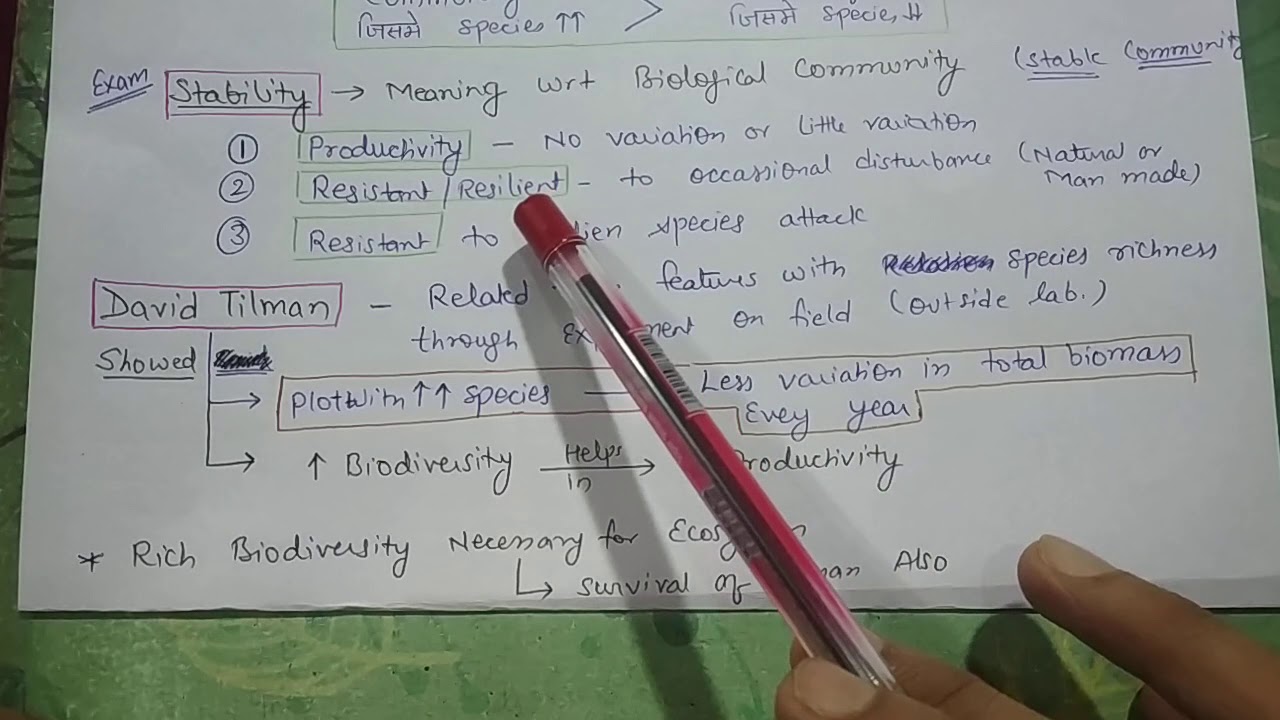 जिसमे species ↑↑ > जिसमे species ↓↓
Exam Stability → Meaning wrt Biological Community (stable Community
① Productivity - No variation or little variation
② Resistant / Resilient - to occassional disturbance (Natural or Man made)
③ Resistant to species attack
David Tilman - Related features with species richness
through on field (outside lab.)
Showed
Plot with ↑↑ species Less variation in total biomass
Evey year
↑ Biodiversity Helps in → Productivity
* Rich Biodiversity Necessary for
↳ survival of Also